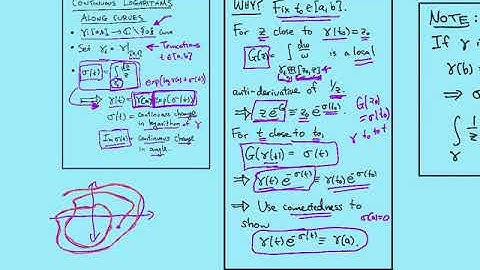 CONTINUOUS LOGARITHMS
ALONG CURVES
• γ: [a,b] → ℂ\{0} curve
• Set γt = γ|[a,t]
Truncations
t ∈ [a,b]
• σ(t) = ∫γt dz/z
⇒ γ(t) = γ(a) exp(σ(t))
σ(t) = continuous change
in logarithm of γ
Im σ(t) = continuous change
in angle
WHY? Fix t0 ∈ [a,b].
For z close to γ(t0) = z0
G(z) = ∫ dω/ω is a local
γt0 ⊞ [z0,z]
anti-derivative of 1/z.
⇒ z e^-G ≡ z0 e^-σ(t0).
G(z0)
= σ(t0)
For t close to t0,
γ to to t
G(γ(t)) = σ(t)
⇒ γ(t) e^-σ(t) ≡ γ(t0) e^-σ(t0)
⇒ Use connectedness to
σ(a)=0
show
γ(t) e^-σ(t) ≡ γ(a).
NOTE:
If γ i
γ(b) =
⇒ σ(
∫γ 1/z